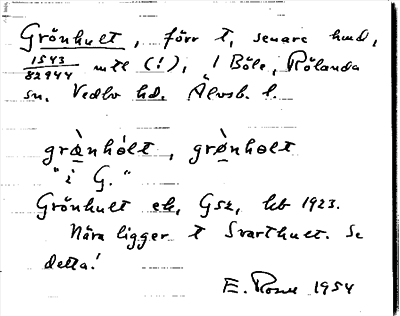 Grönhult, förr t, senare hmd,
1543/82944 mtl (!), i Böle, Rölanda
sn. Vedbo hd. Älvsb. l.
grø̀nhólt, grø̀nhølt
"i G."
Grönhult ek, Gsz, kb 1923.
Nära ligger t Svarthult. Se
detta!
E. 1954